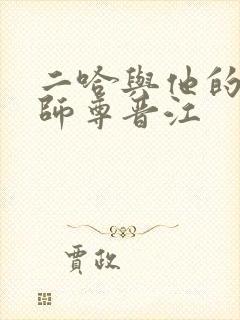 二哈與他的
師尊晋江
賈政